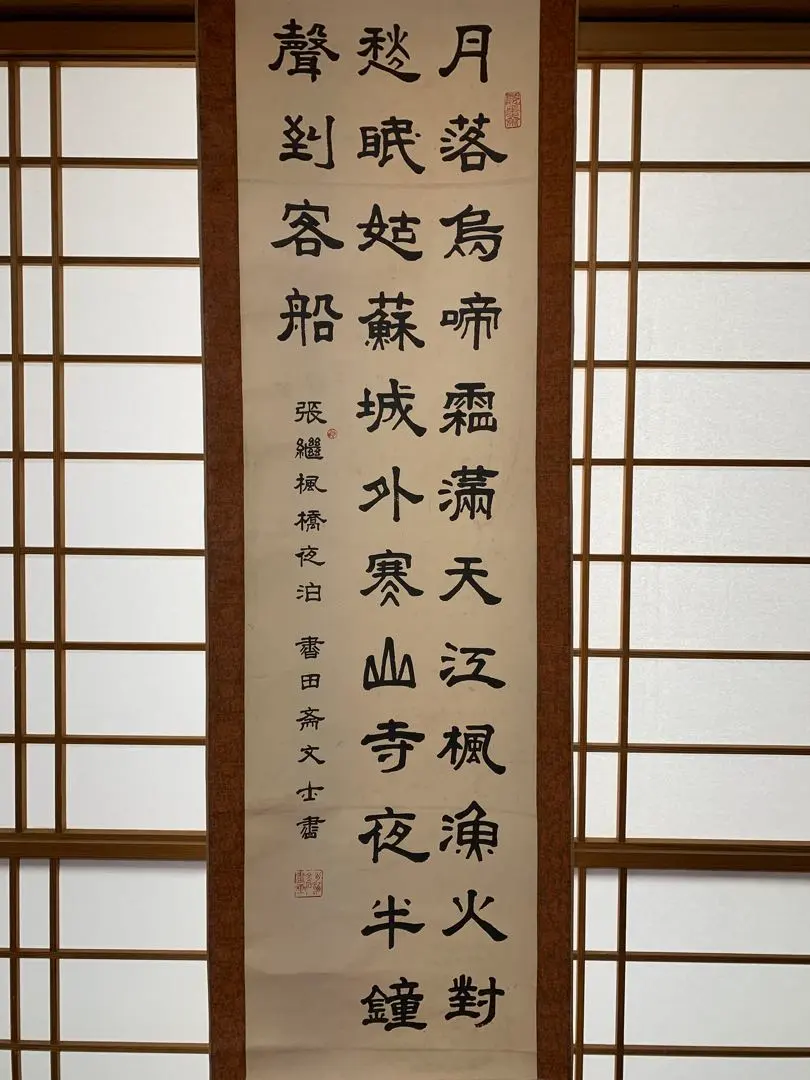 月落烏啼霜滿天江楓漁火對
愁眠姑蘇城外寒山寺夜半鐘
聲到客船
張繼楓橋夜泊 書田斎文士書